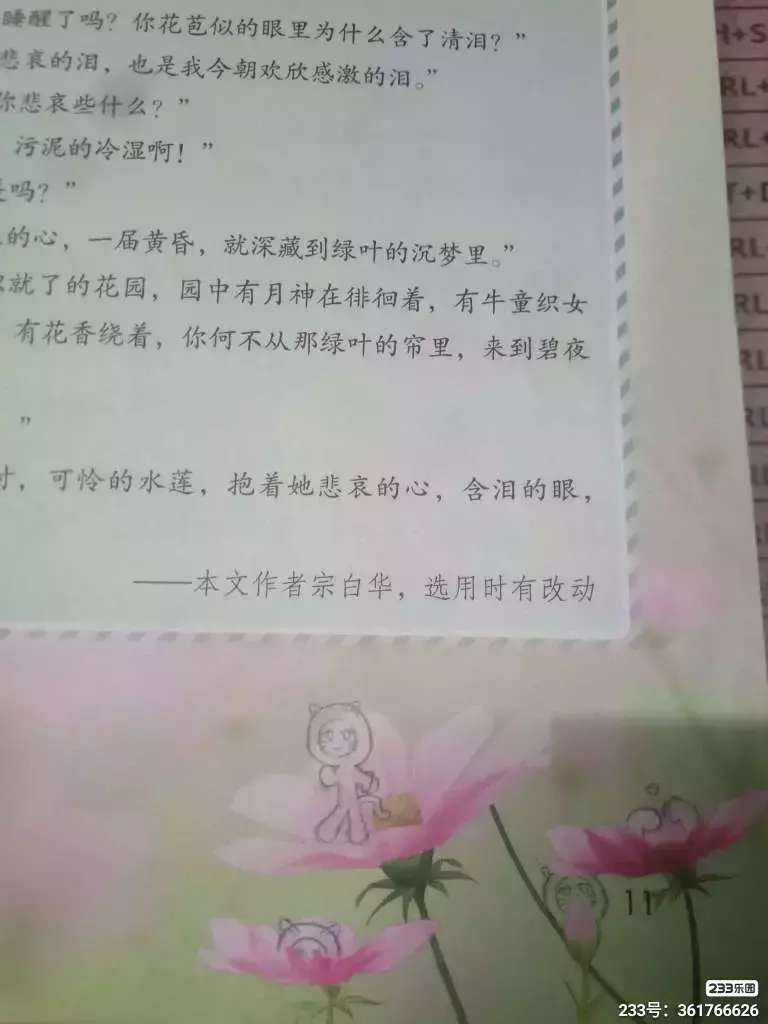 睡醒了吗？你花苞似的眼里为什么含了清泪？”
悲哀的泪，也是我今朝欢欣感激的泪。”
你悲哀些什么？”
污泥的冷湿啊！”
吗？”
的心，一届黄昏，就深藏到绿叶的沉梦里。”
就了的花园，园中有月神在徘徊着，有牛童织女
有花香绕着，你何不从那绿叶的帘里，来到碧夜
”
，可怜的水莲，抱着她悲哀的心，含泪的眼，
——本文作者宗白华，选用时有改动
11
+S
RL+
RL+
T+D
RL+
RL
RL
RL
233乐园
233号：361766626